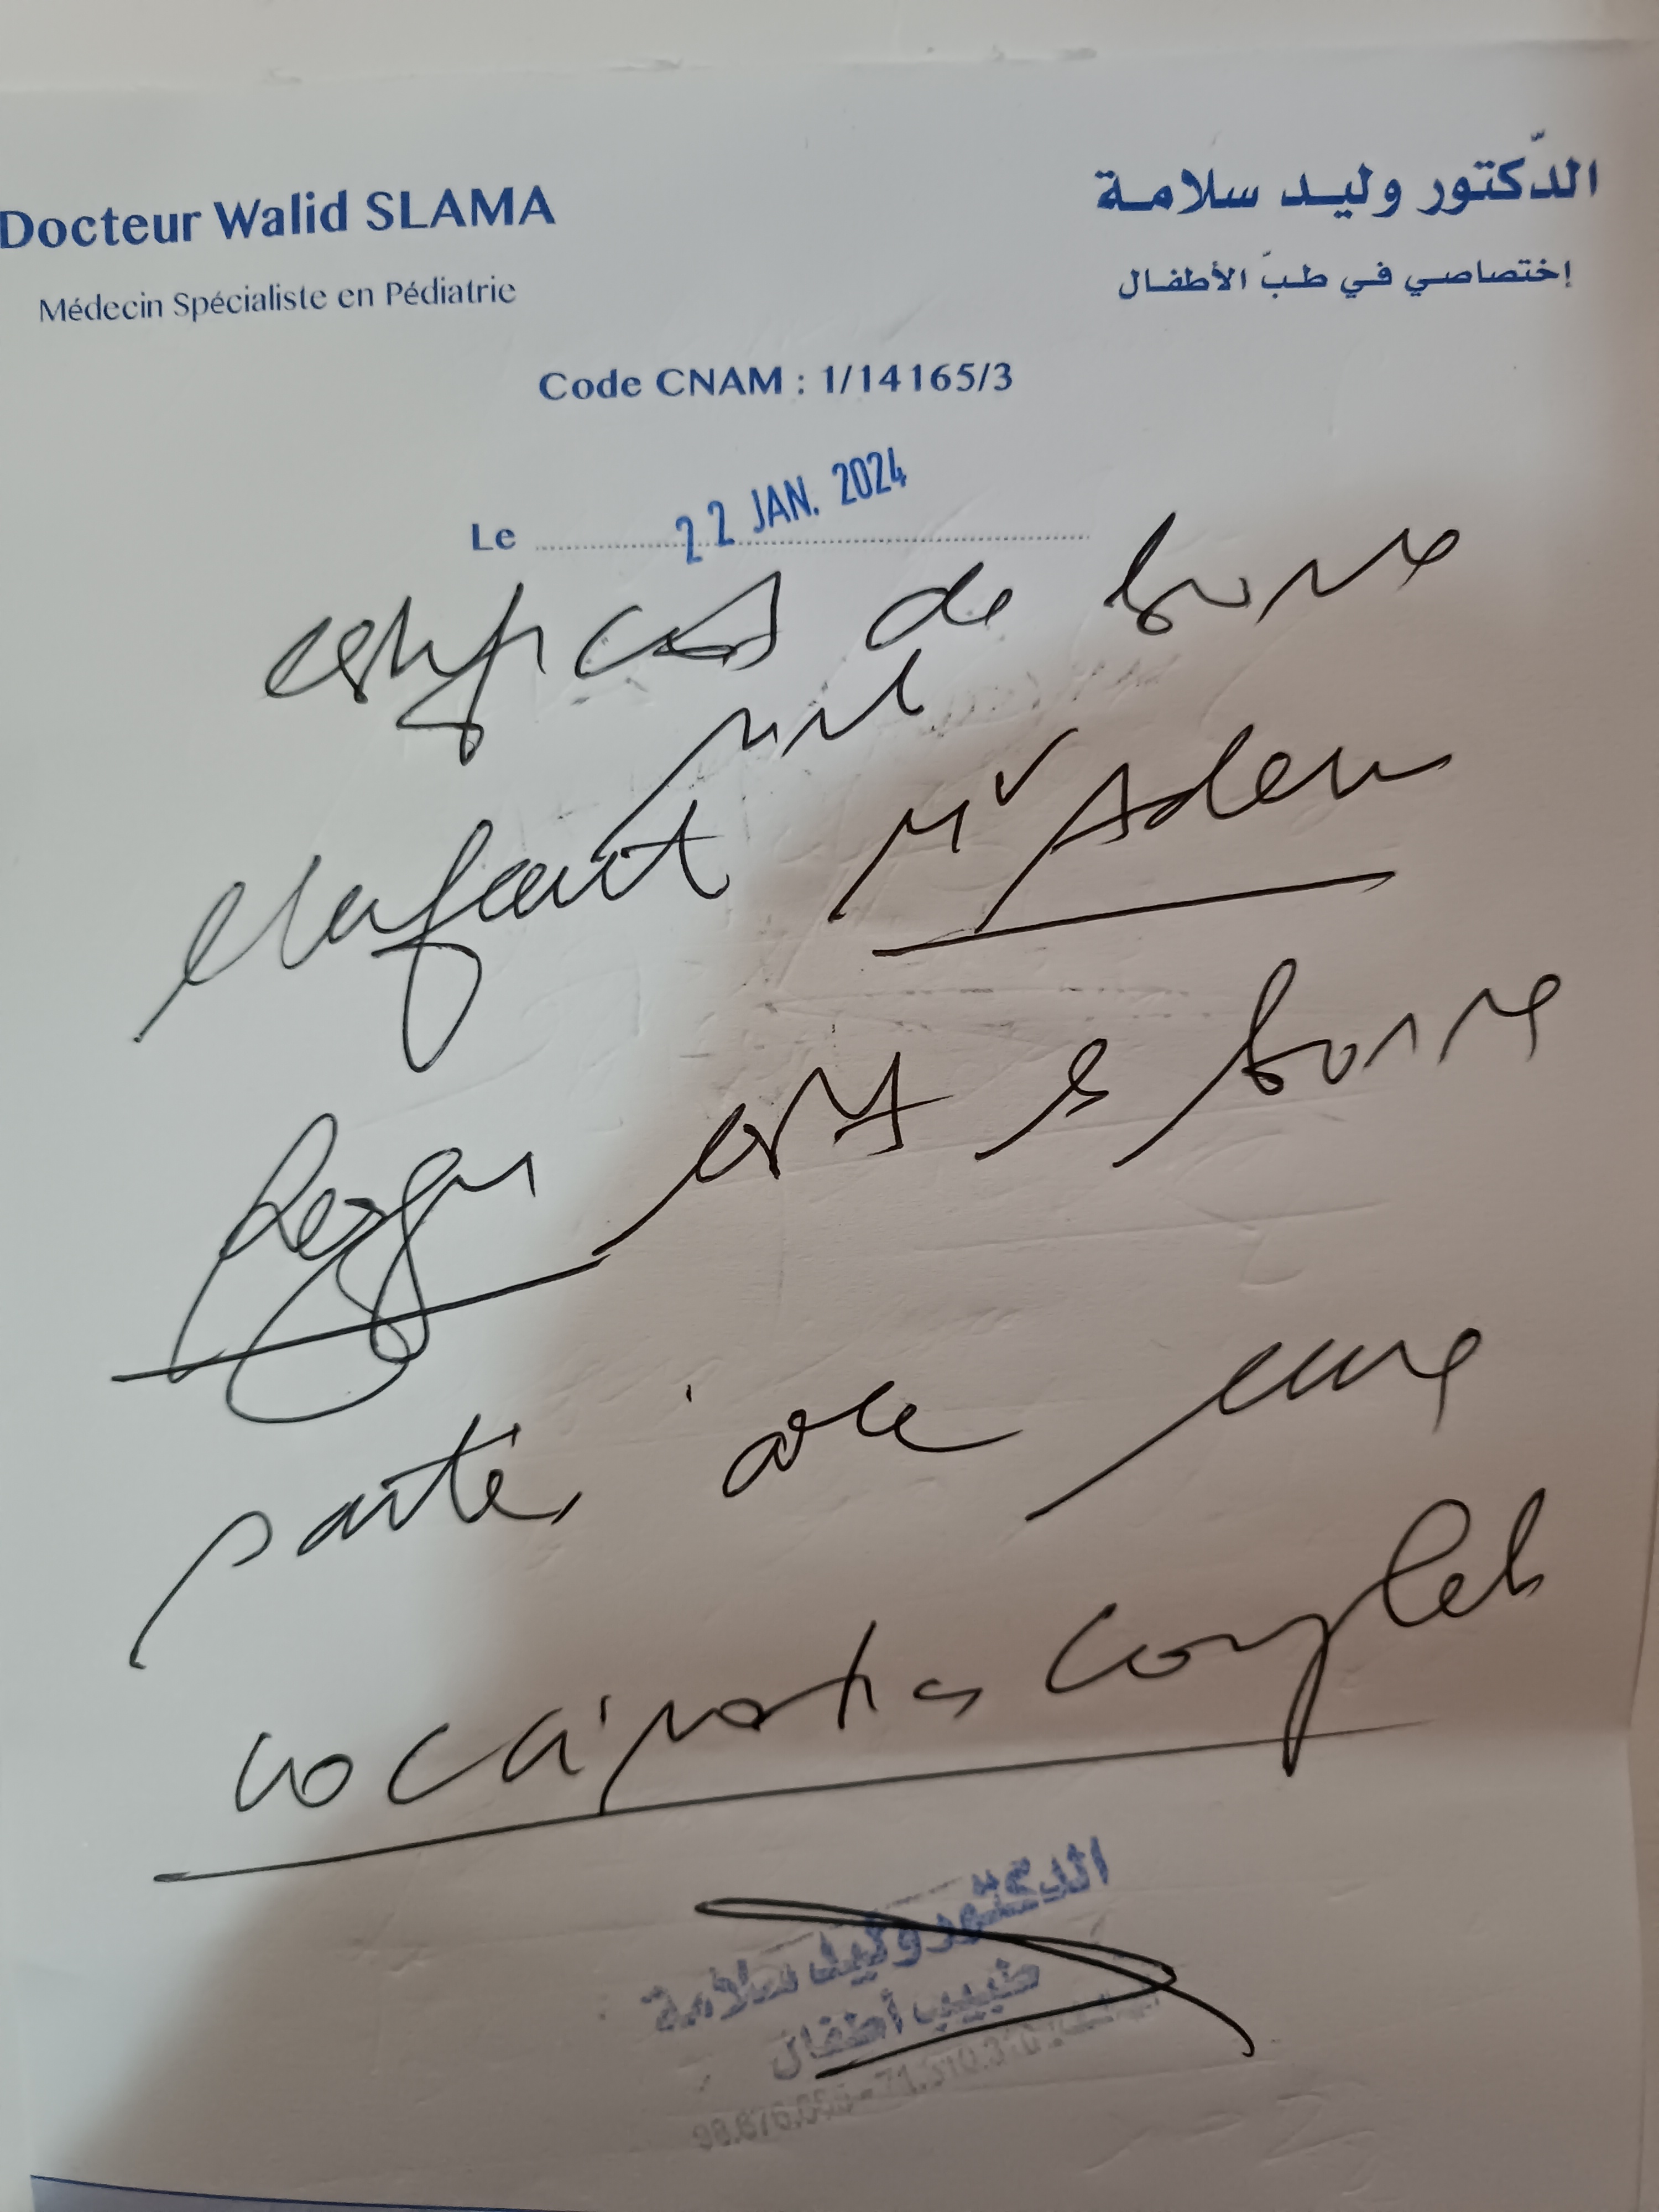 Docteur Walid SLAMA
الدّكتور وليد سلامة
Médecin Spécialiste en Pédiatrie
إختصاصي في طبّ الأطفال
Code CNAM : 1/14165/3
Le 22 JAN. 2024
certificat de bonne
santé
l'enfant Mr Adem
est en bonne
santé, avec une
vaccination complète
الدكتور وليد سلامة
طبيب أطفال
71.310.310